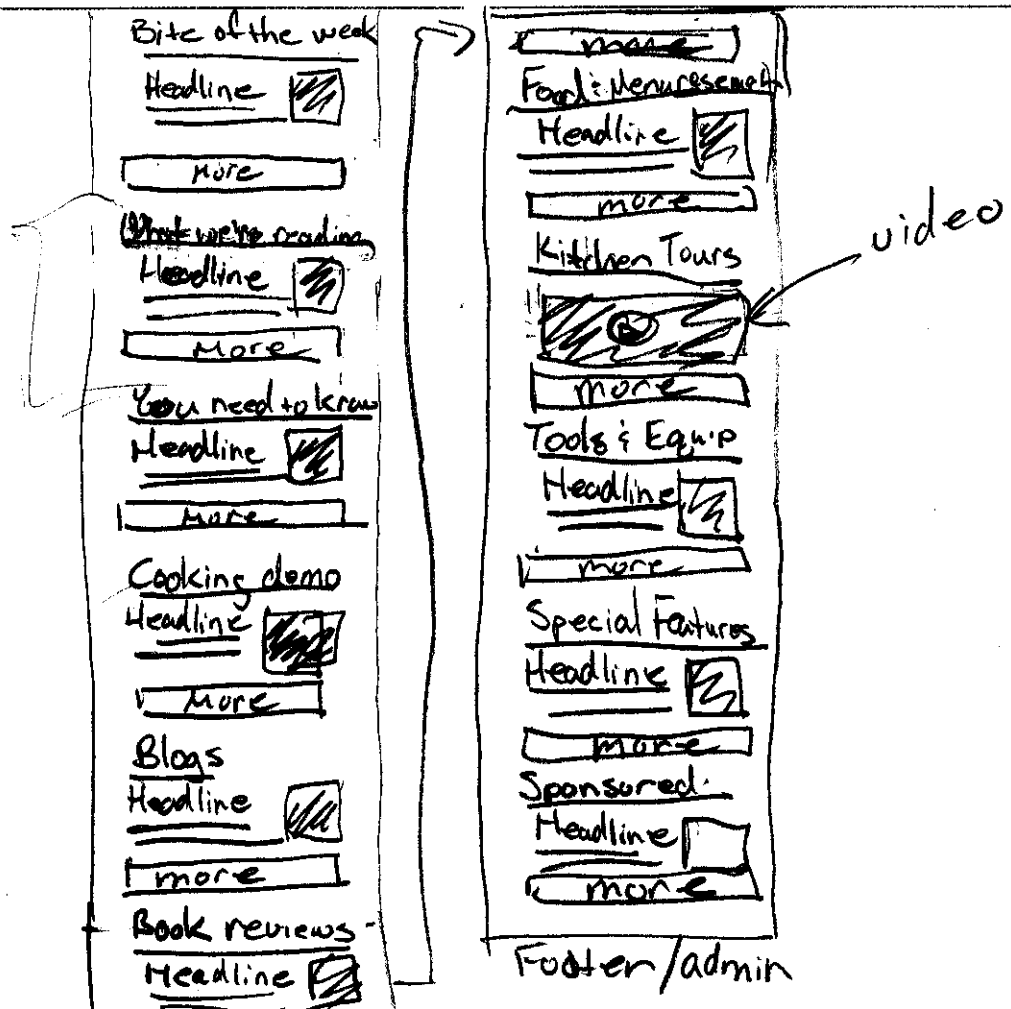 Bite of the week
Headline
More
What we're reading
Headline
More
You need to know
Headline
More
Cooking demo
Headline
More
Blogs
Headline
more
Book reviews
Headline
more
Food &
Headline
more
Kitchen Tours
video
more
Tools & Equip
Headline
more
Special Features
Headline
more
Sponsored
Headline
more
Footer/admin